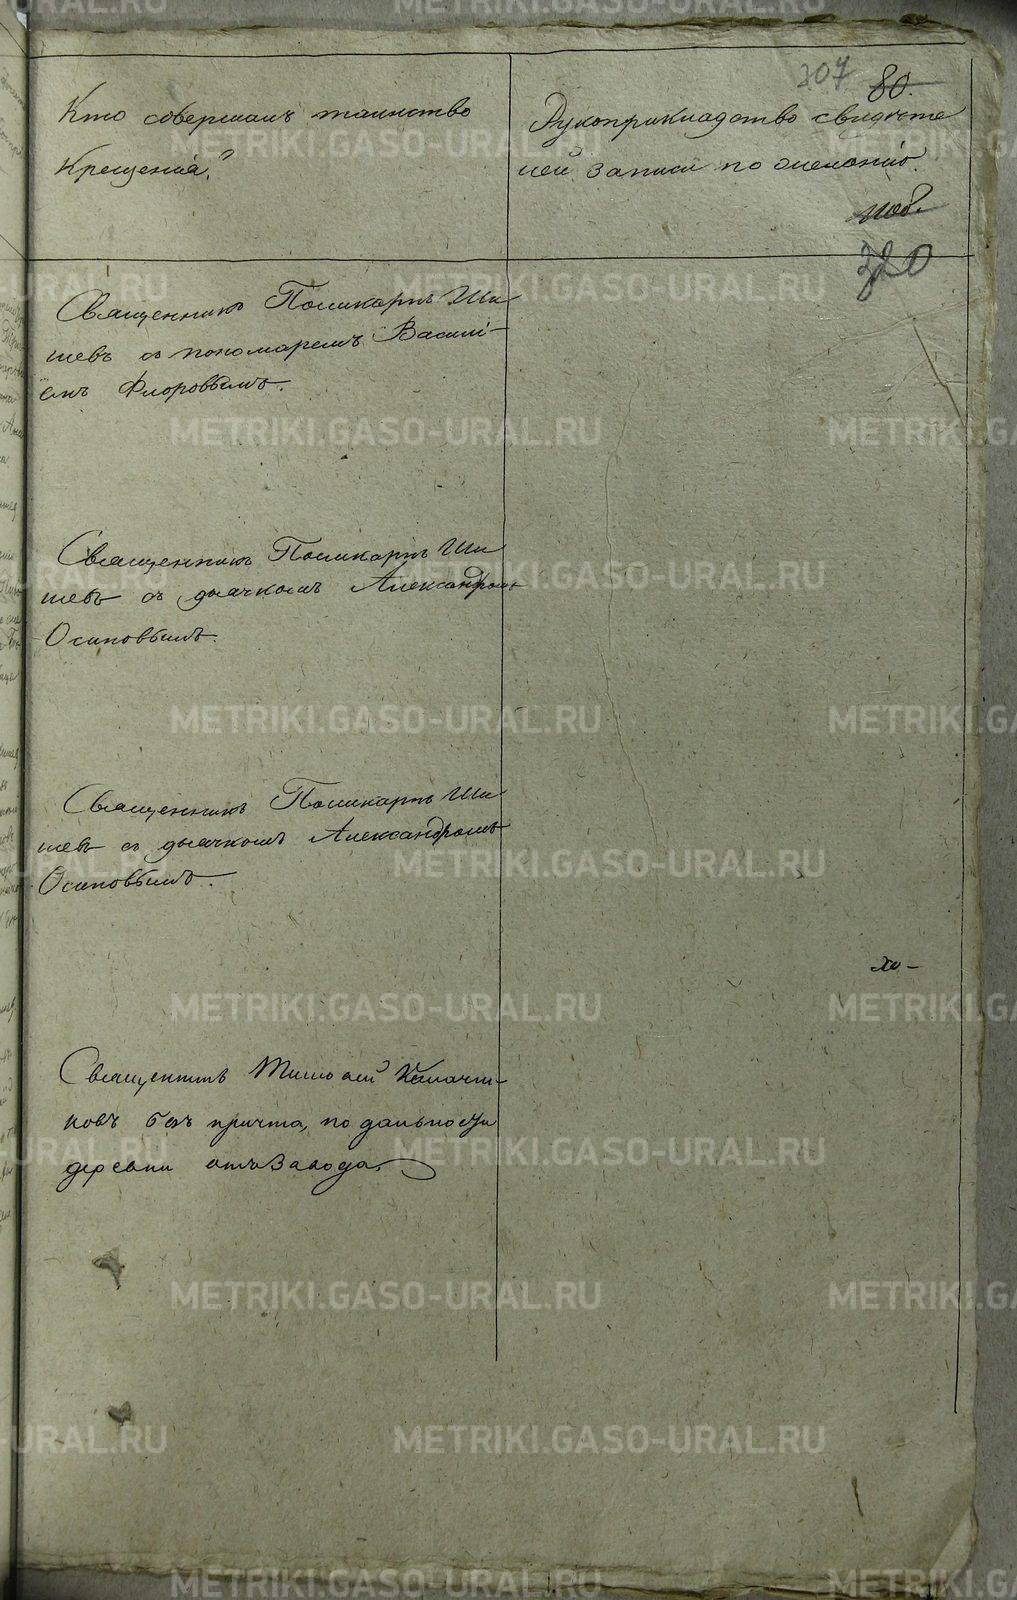 307 80.
Кто совершалъ таинство
Крещенія?
Рукоприкладство свидѣте
лей записи по желанію.
320
Священникъ Поликарпъ Ши
шевъ съ пономаремъ Василі-
емъ Флоровымъ.
Священникъ Поликарпъ Ши
шевъ съ дьячкомъ Александромъ
Осиповымъ.
Священникъ Поликарпъ Ши
шевъ съ дьячкомъ Александромъ
Осиповымъ.
хо-
Священникъ
ковъ безъ причта, по дальности
деревни отъ Завода.
METRIKI.GASO-URAL.RU